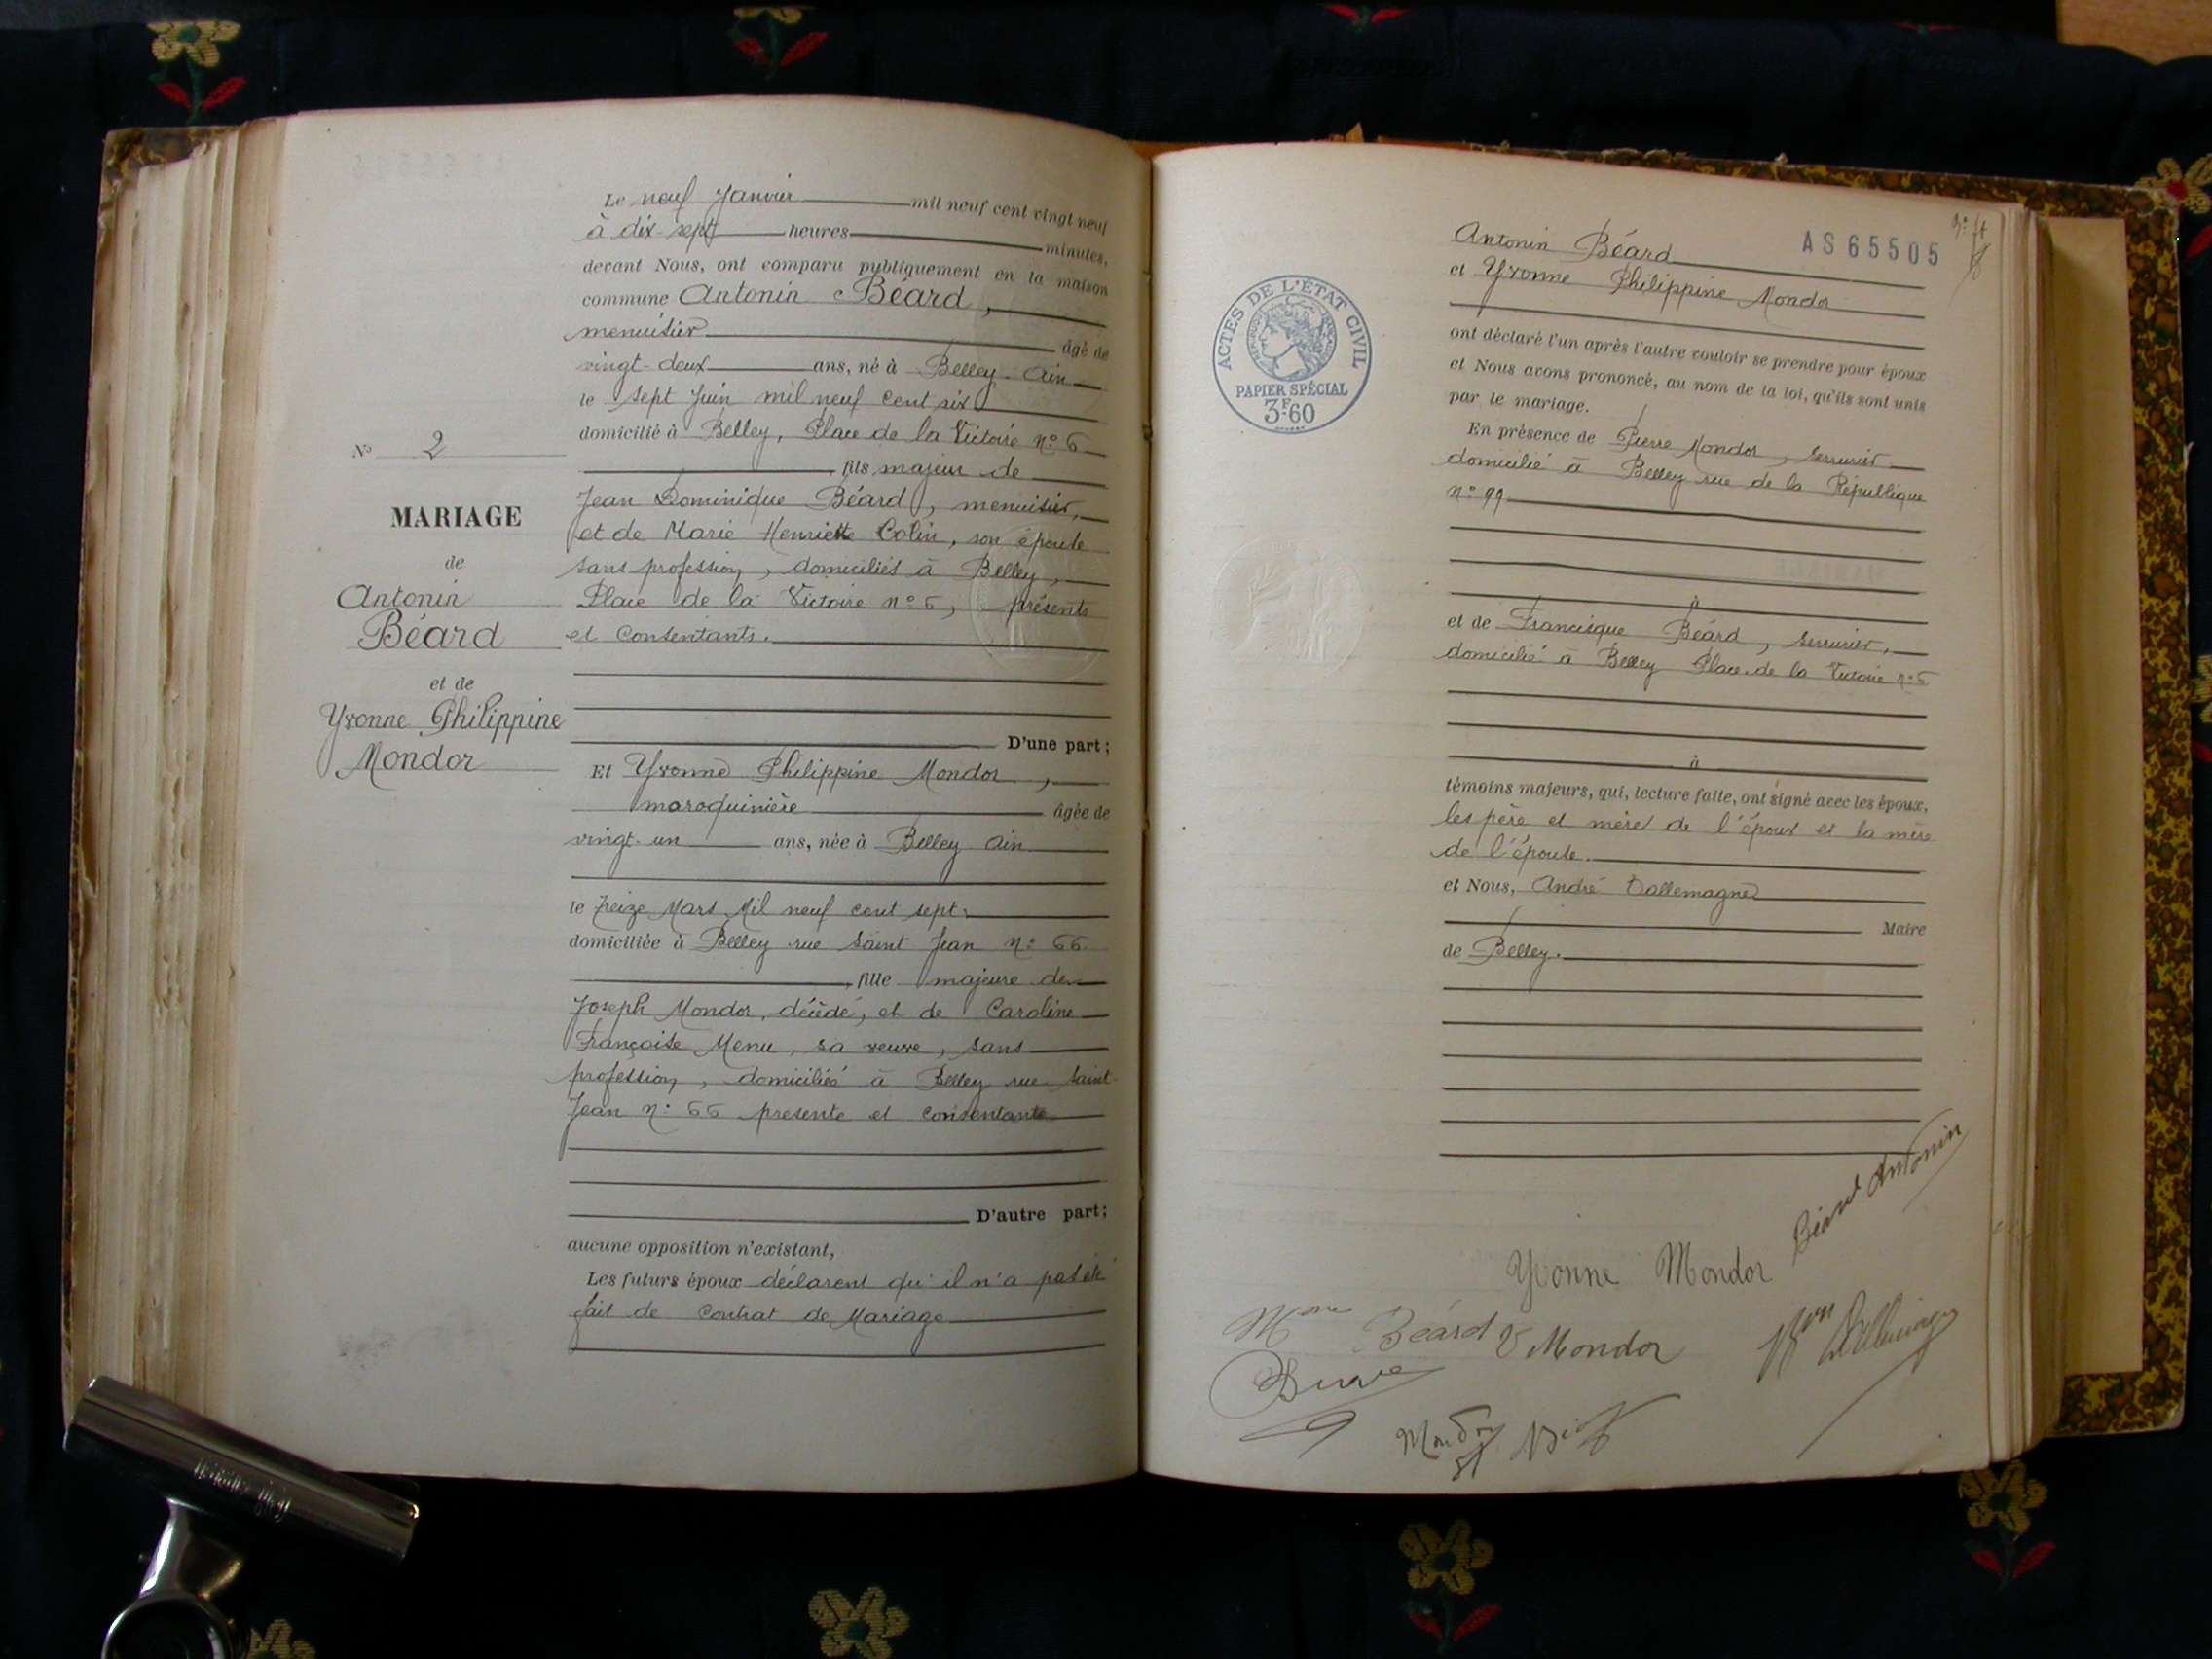 Le neuf Janvier mil neuf cent vingt neuf
à dix-sept heures minutes,
devant Nous, ont comparu publiquement en la maison
commune Antonin Béard,
menuisier âgé de
vingt-deux ans, né à Belley Ain
le sept Juin mil neuf cent six
domicilié à Belley, Place de la Victoire n° 6
fils majeur de
Jean Dominique Béard, menuisier,
et de Marie Henriette Colin, son épouse
sans profession, domiciliés à Belley,
Place de la Victoire n° 6, présents
et consentants.
D'une part;
N° 2
MARIAGE
de
Antonin
Béard
et de
Yvonne Philippine
Mondor
Et Yvonne Philippine Mondor,
maroquinière âgée de
vingt-un ans, née à Belley Ain
le treize Mars Mil neuf cent sept.
domiciliée à Belley rue Saint Jean n° 66
, fille majeure de
Joseph Mondor, décédé, et de Caroline
Françoise Menu, sa veuve, sans
profession, domiciliée à Belley rue Saint
Jean n° 66 présente et consentante
D'autre part;
aucune opposition n'existant,
Les futurs époux déclarent qu'il n'a pas été
fait de contrat de Mariage
AS 65505
Antonin Béard
et Yvonne Philippine Mondor
ACTES DE L'ÉTAT CIVIL
PAPIER SPÉCIAL
3F.60
ont déclaré l'un après l'autre vouloir se prendre pour époux
et Nous avons prononcé, au nom de la loi, qu'ils sont unis
par le mariage.
En présence de Pierre Mondor, serrurier
domicilié à Belley rue de la République
n° 99
à
et de Francisque Béard, serrurier,
domicilié à Belley Place de la Victoire n° 6
à
témoins majeurs, qui, lecture faite, ont signé avec les époux,
les père et mère de l'époux et la mère
de l'épouse.
et Nous, André Dallemagne
Maire
de Belley.
Béard Antonin
Yvonne Mondor
Mme Béard V Mondor